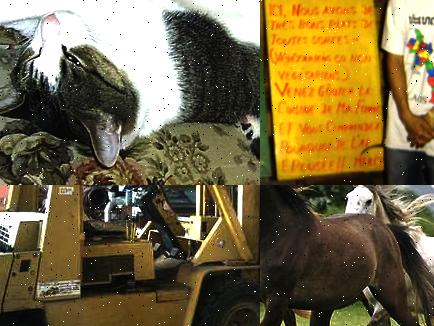 ICI, NOUS AVONS DE
TRÈS BONS PLATS DE
TOUTES SORTES.
(VÉGÉTARIENS OU NON
VÉGÉTARIENS)
VENEZ GOÛTER LA
CUISINE DE MA FEMME
ET VOUS COMPRENDREZ
POURQUOI JE L'AI
EPOUSÉE!!. MERCI